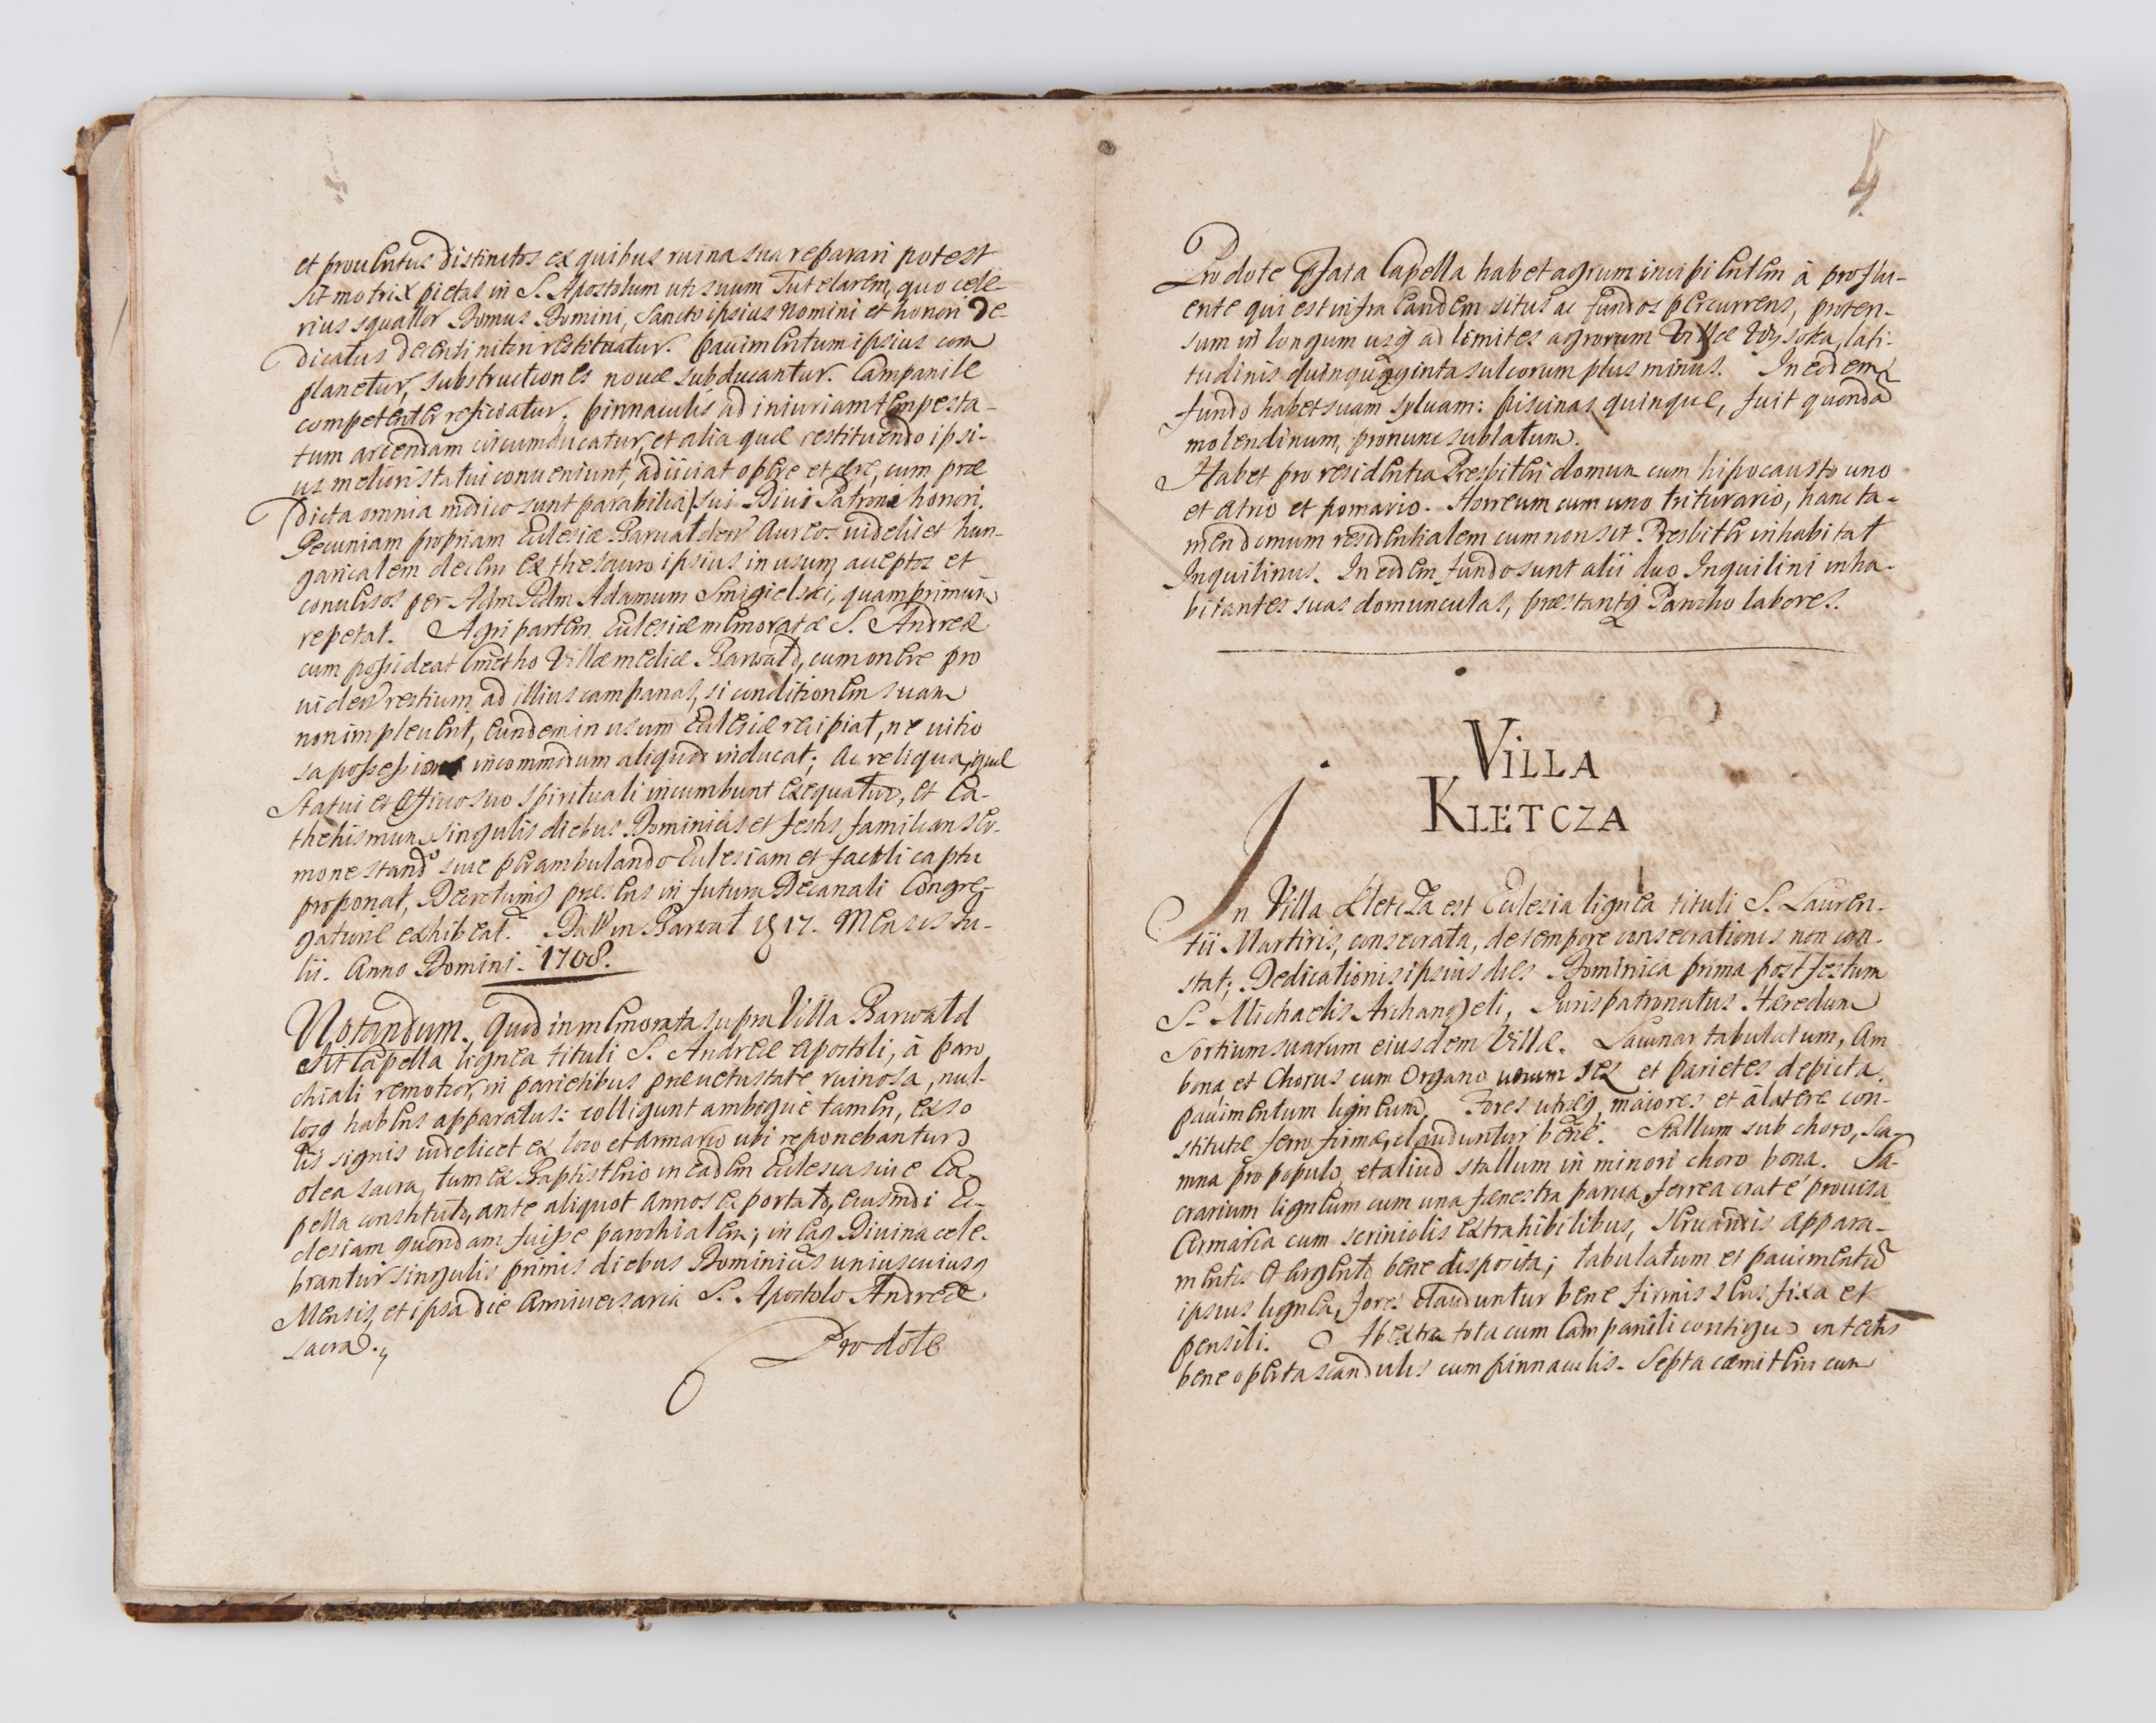 et prouentus distinctos ex quibus ruina sua reparari potest
sit motrix pietas in S. Apostolum uti suum Tutelarem, quo cele-
rius squallor Domus Domini, sancto ipsius nomini et honori de
dicatus decenti nitori restituatur. pauimentum ipsius com
planetur, substructiones nouæ subducantur. Campanile
competenter reficiatur, pinnaculis ad iniuriam tempesta-
tum arcendam circumducatur, et alia quæ restituendo ipsi-
us meliori statui conueniunt, adiiciat opere et ære, cum præ
dicta omnia modico sunt parabilia sui Diui Patroni honori.
Pecuniam propriam Eulesiæ Barwalden aureos uidelicet hun-
garicalem decem ex thesauro ipsius in usum acceptos et
conuersos per Adm Rdm Adamum Smigielski, quamprimum
repetat. Agri partem Eulesiæ memoratæ S. Andreæ
cum possideat Cmetho Villæ mediæ Barwald, cum onere pro
uiden restium ad illius campanas, si conditionem suam
non impleuerit, eundem in usum Eulesiæ recipiat, ne uitio
sa possessione incommodum aliquod inducat; ac reliqua, quæ
statui et officio suo spirituali incumbunt exequatur, et Ca-
thethismum singulis diebus Dominicis et festis, familiari ser-
mone stando siue perambulando Eulesiam et facili captu
proponat, Decretumq præsens in futura Decanali Congre-
gatione exhibeat. Datt in Barwalt 17. Mensis Iu-
lii. Anno Domini. 1708.
Notandum. Quod in memorata supra Villa Barwald
sit Capella lignea tituli S. Andreæ Apostoli, à paro
chiali remotior, in parietibus præ uetustate ruinosa, nul-
losq habens apparatus: colligunt ambigue tamen, ex so
lis signis uidelicet ex loco et armario ubi reponebantur
olea sacra, tum ex Baptisterio in eadem Eulesia siue Ca
pella constituto, ante aliquot annos exportato, eiusmodi Ec-
clesiam quondam fuisse parochialem; in eaq Diuina cele-
brantur singulis primis diebus Dominicis uniuscuiusq
Mensis, et ipsa die Anniuersaria S. Apostolo Andreæ
sacra.
Pro dote
4
Pro dote pfata Capella habet agrum incipientem à proflu-
ente qui est infra eandem situs ac fundos percurrens, proten-
sum in longum usq ad limites agrorum Villæ Wysoka, lati-
tudinis quinquaginta sulcorum plus minus. In eodem
fundo habet suam syluam: piscinas quinque, fuit quondã
molendinum, pronunc sublatum.
Habet pro residentia Presbiteri domum cum hipocausto uno
et atrio et pomario. Horreum cum uno triturario, hanc ta-
men domum residentialem cum non sit Presbiter inhabitat
Inquilinus. In eodem fundo sunt alii duo Inquilini inha-
bitantes suas domunculas, præstantq Parocho labores.
VILLA
KLETCZA
In Villa Kletcza est Eulesia lignea tituli S. Lauren-
tii Martiris, consecrata, de tempore consecrationis non con-
stat; Dedicationis ipsius dies Dominica prima post festum
S. Michaelis Archangeli, Iuris patronatus Hæredum
sortium suarum eiusdem Villæ. Lacunar tabulatum, Am
bona et Chorus cum Organo uocum sex et parietes depicta
pauimentum ligneum. Fores utræq maiores et à latere con-
stitutæ ferro firmæ, clauduntur bene. Stallum sub choro, sca-
mna pro populo, et aliud stallum in minori choro bona. Sa-
crarium ligneum cum una fenestra parua, ferrea crate prouisa
Armaria cum scriniolis extrahibilibus, seruandis appara-
mentis et argento bene disposita; tabulatum et pauimentũ
ipsius lignea, fores clauduntur bene firmis seris fixa et
pensili. Ab extra tota cum Campanili contiguo in tectis
bene operta scandulis cum pinnaculis. Septa cæmiterii cum